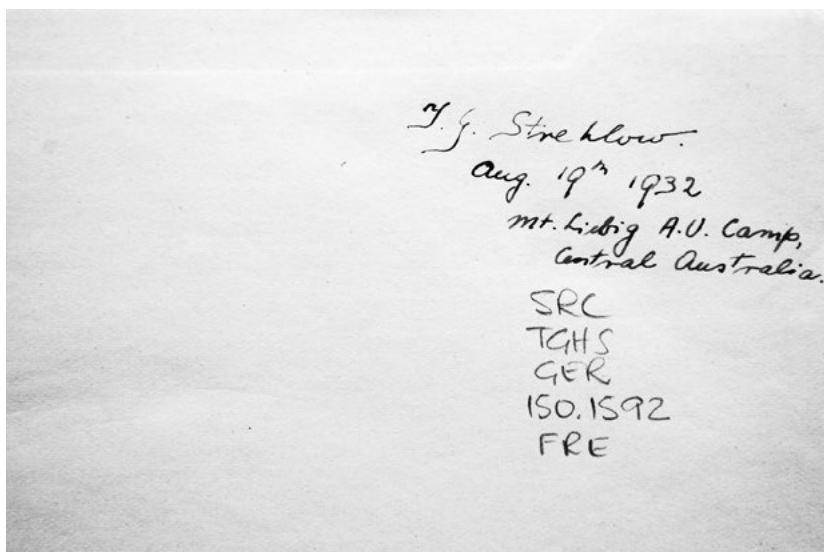 T. G. Strehlow.
Aug. 19th 1932
Mt. Liebig A.U. Camp,
Central Australia.
SRC
TGHS
GER
150.1592
FRE